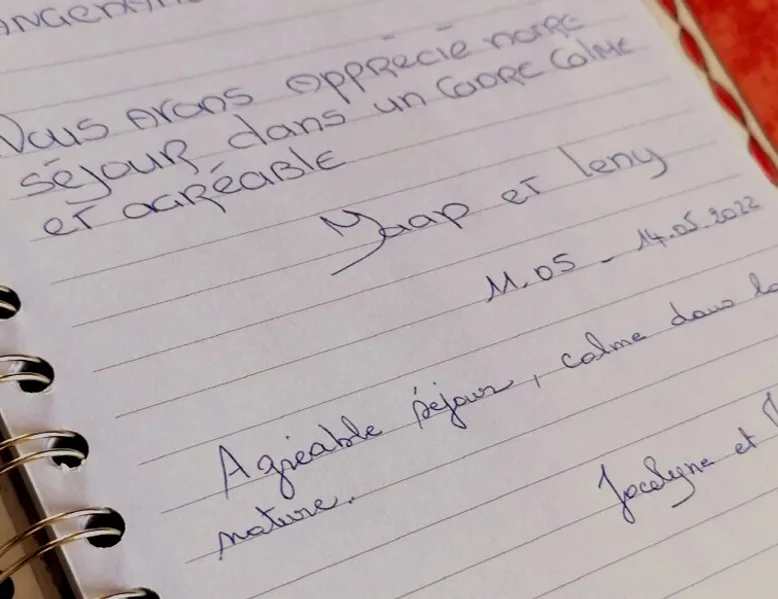 Nous avons apprécié notre
séjour dans un cadre calme
et agréable
Jaap et leny
11.05 - 14.05.2022
Agréable séjour, calme dans la
nature.
Jocelyne et